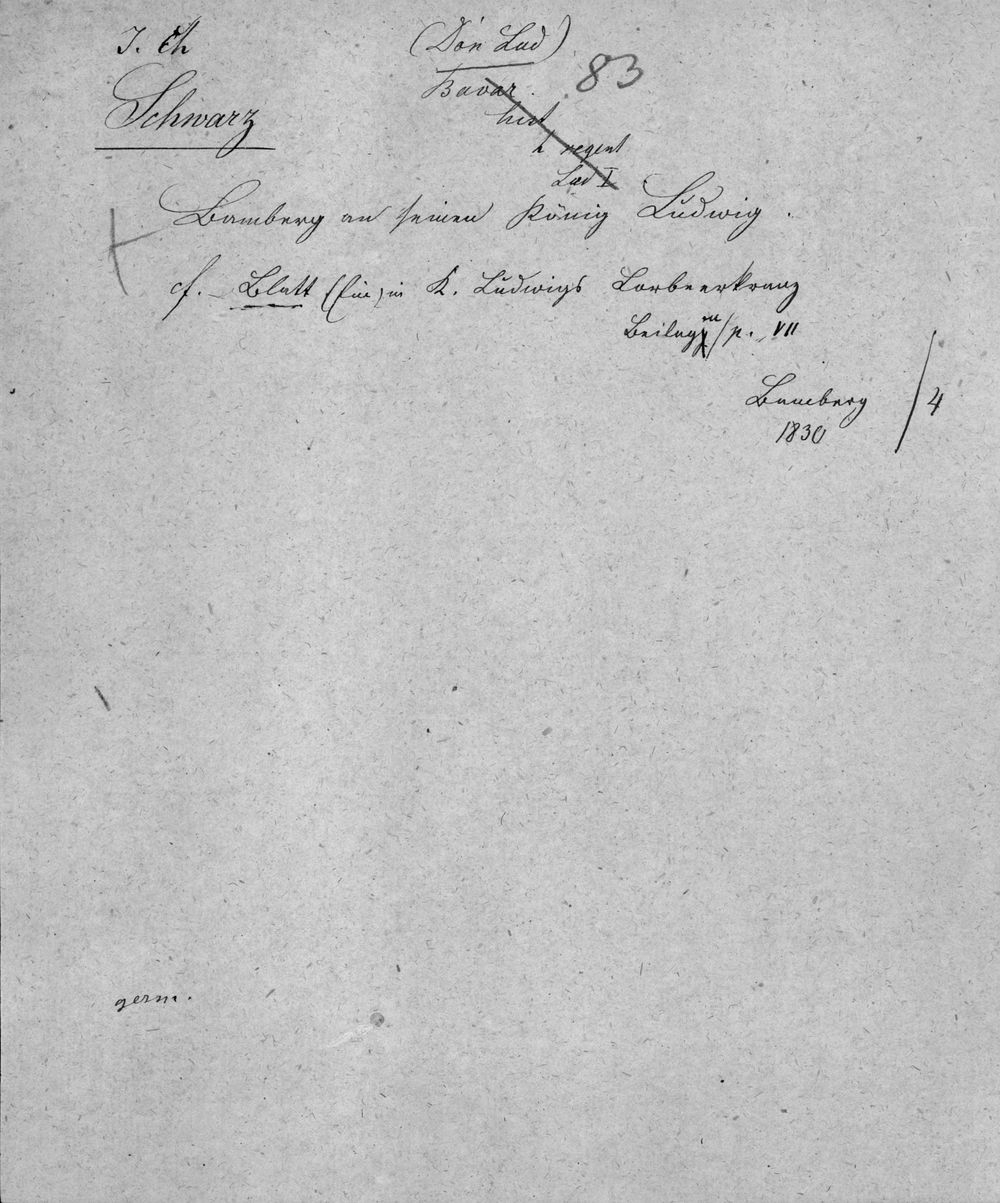 J. Ch
(Don Lud)
83
Schwarz
Bavar.
hist
h regent
Lud I
Bamberg an seinen König Ludwig.
cf. Blatt (Ein) in K. Ludwigs Lorbeerkranz
Beilagen / p. VII
Bamberg / 4
1830
germ.